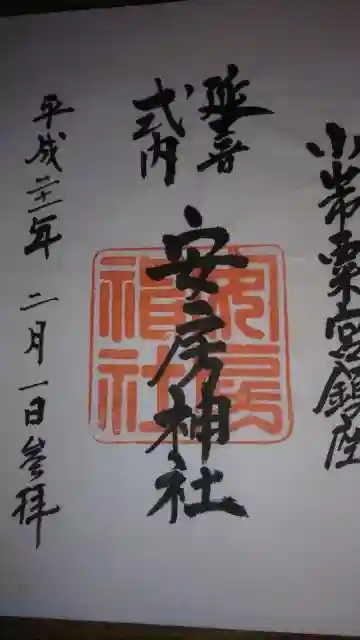 小山市粟宮鎮座
延喜
式内
安房神社
安房
神社
平成二十一年 二月一日参拝